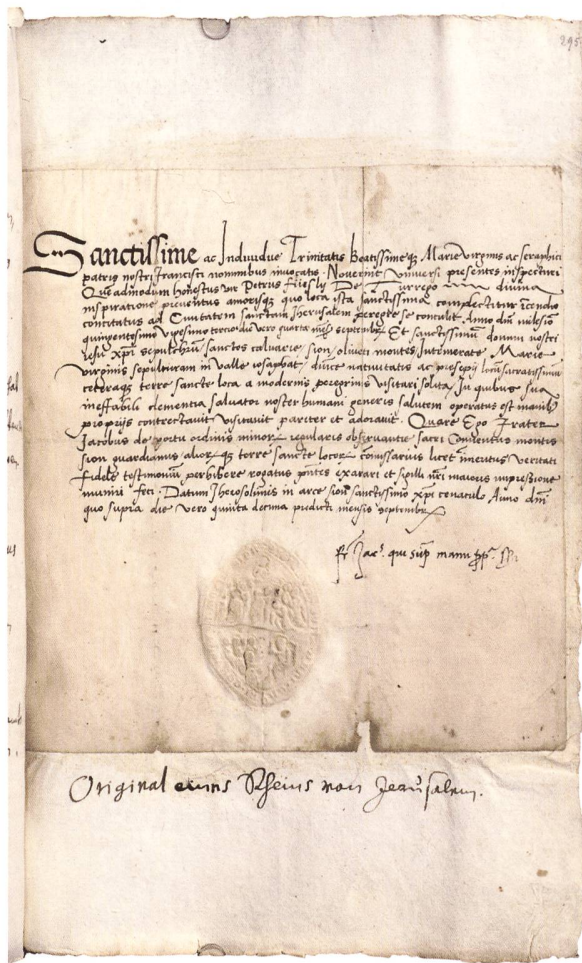 295
Sanctissime ac Individue Trinitatis Beatissimeq; Marie virginis ac seraphici
patris nostri francisci nominibus invocatis. Noverint universi presentes inspecturi
Queadmodum honestus vir Petrus fiiesly De Turrego divina
inspiratione preventus amorisq; quo loca ista sanctissima complectitur icendio
concitatus ad Civitatem sanctam Iherusalem perepte se contulit. Anno dni milesio
quingentesimo vigesimo tercio die vero quarta mēs septembr. Et sanctissimū domini nostri
iesu xpi sepulchrum, sanctos calvarie, sion, oliveti montes, Intemerate Marie
virginis sepulturam in valle iosaphat, divine nativitatis ac presepij locū sacratissimū
ceteraq; terre sancte loca a modernis peregrinis visitari solita, In quibus sua
ineffabili clementia salvator noster humani generis salutem operatus est manib
proprijs contrectavit visitavit pariter et adoravit. Quare Ego frater
Iacobus de portu ordinis minor regularis observantie sacri Conventus montis
sion guardianus aliorq; terre sancte locor comissarius licet imeritus veritati
fidele testimoniū perhibere rogatus pntes exarari et sigilli nri maioris impressione
muniri feci. Datum Iherosolimis in arce sion sanctissimo xpi cenaculo Anno dni
quo supra die vero quinta decima predicti mensis septembr
fr Iac. qui sup manu pp.
Original eines Rheins von Jerusalem.